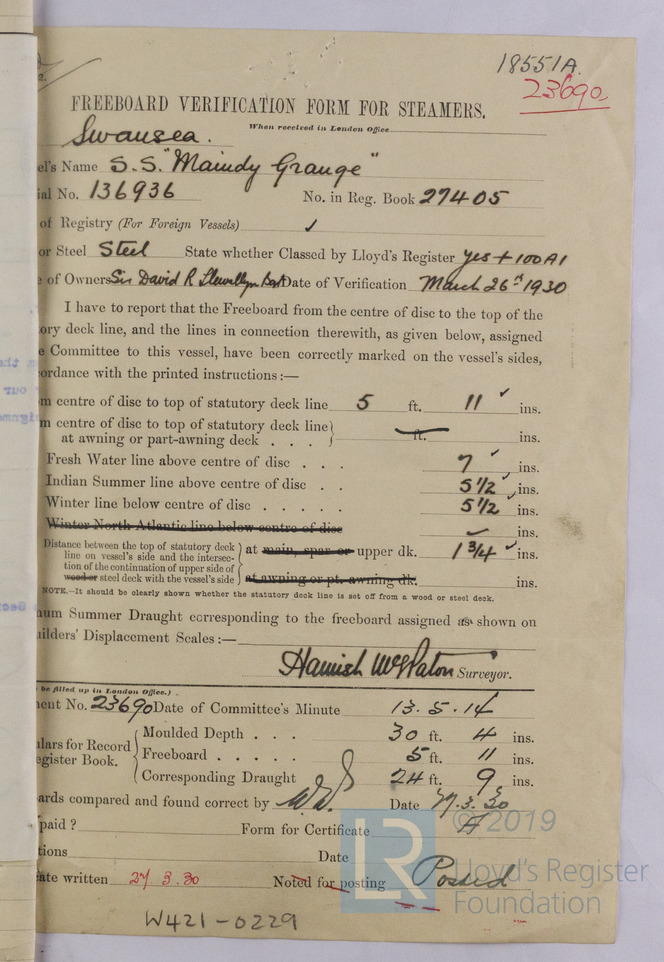 18551A.
23690
FREEBOARD VERIFICATION FORM FOR STEAMERS.
When received in London Office
Swansea.
el's Name S.S. "Maindy Grange"
ial No. 136936 No. in Reg. Book 27405
of Registry (For Foreign Vessels) ✓
or Steel Steel State whether Classed by Lloyd's Register yes + 100 A1
e of Owners Sir David R Llewellyn Bart Date of Verification March 26th 1930
I have to report that the Freeboard from the centre of disc to the top of the
ory deck line, and the lines in connection therewith, as given below, assigned
e Committee to this vessel, have been correctly marked on the vessel's sides,
ordance with the printed instructions:—
m centre of disc to top of statutory deck line 5 ft. 11 ✓ ins.
m centre of disc to top of statutory deck line
at awning or part-awning deck . . . ft. ins.
Fresh Water line above centre of disc . . . 7 ✓ ins.
Indian Summer line above centre of disc . . 5 1/2 ✓ ins.
Winter line below centre of disc . . . . . 5 1/2 ✓ ins.
Winter North Atlantic line below centre of disc ✓ ins.
Distance between the top of statutory deck
line on vessel's side and the intersec-
tion of the continuation of upper side of
wood or steel deck with the vessel's side
at main, spar or upper dk. 1 3/4 ✓ ins.
at awning or pt. awning dk. ins.
NOTE.—It should be clearly shown whether the statutory deck line is set off from a wood or steel deck.
um Summer Draught corresponding to the freeboard assigned as shown on
uilders' Displacement Scales:—
Hamish Surveyor.
be filled up in London Office.)
ment No. 23690 Date of Committee's Minute 13.5.14
ulars for Record
egister Book.
Moulded Depth . . . 30 ft. 4 ins.
Freeboard . . . . . 5 ft. 11 ins.
Corresponding Draught 24 ft. 9 ins.
ards compared and found correct by Date 27.3.30
paid ? Form for Certificate A
tions Date
ate written 27.3.30 Noted for posting Posted
W421-0229
© 2019
LR
Lloyd's Register
Foundation